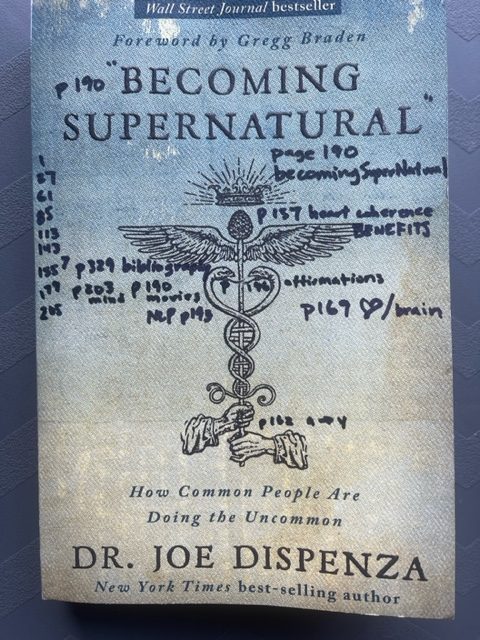 Wall Street Journal bestseller
Foreword by Gregg Braden
p 190 "BECOMING
SUPERNATURAL"
page 190
becoming SuperNatural
1
37
61
85
113
143
155
179
205
p 137 heart coherence
BENEFITS
p329 bibliography
p203 mind movies p190
NLP p193
affirmations
p169 ♡/brain
p162
How Common People Are
Doing the Uncommon
DR. JOE DISPENZA
New York Times best-selling author